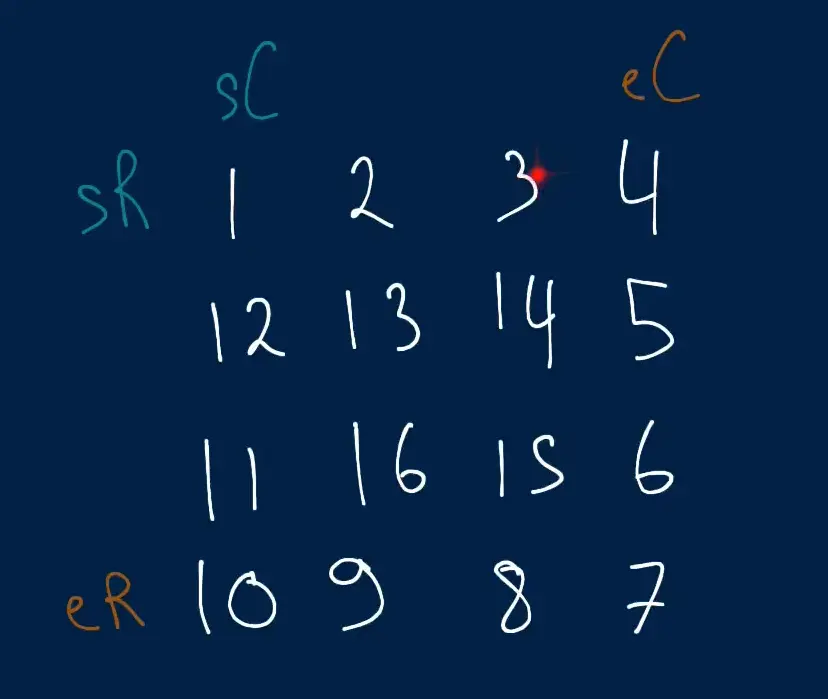 sC eC
sR 1 2 3 4
12 13 14 5
11 16 15 6
eR 10 9 8 7